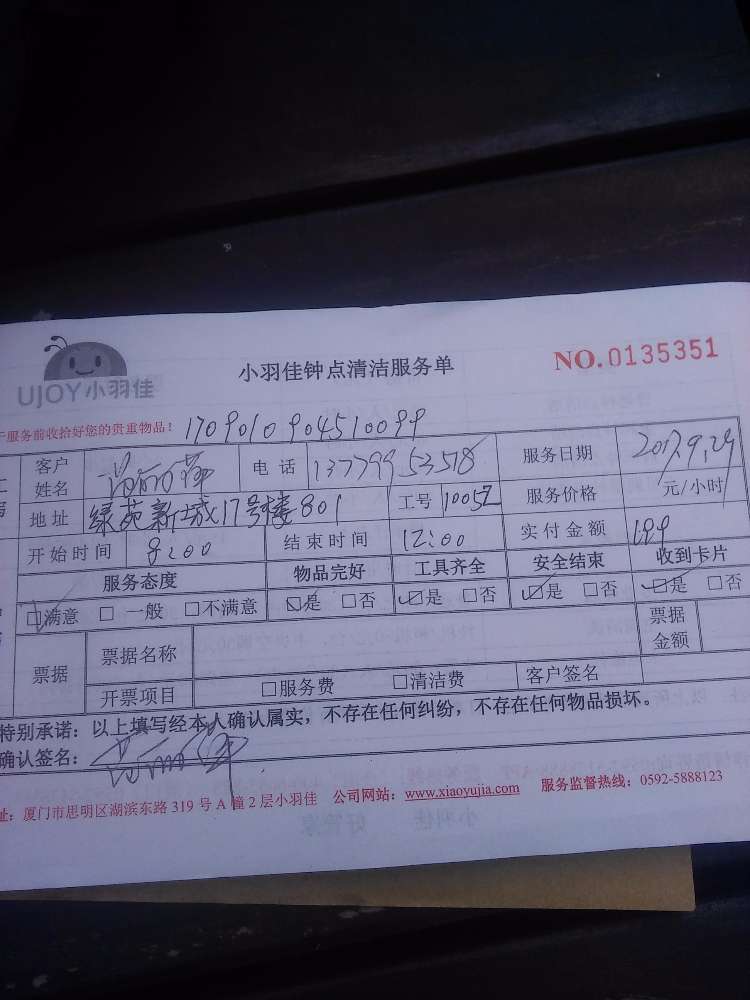 UJOY小羽佳
小羽佳钟点清洁服务单
NO.0135351
于服务前收拾好您的贵重物品！ 1709010904510099
客户姓名 电话 13779953578 服务日期 2017.9.29
地址 绿苑新城17号楼801 工号 10052 服务价格 元/小时
开始时间 8:00 结束时间 12:00 实付金额 199
服务态度 物品完好 工具齐全 安全结束 收到卡片
☑满意 □一般 □不满意 ☑是 □否 ☑是 □否 ☑是 □否 ☑是 □否
票据 票据名称 票据金额
开票项目 □服务费 □清洁费 客户签名
特别承诺：以上填写经本人确认属实，不存在任何纠纷，不存在任何物品损坏。
确认签名：
址：厦门市思明区湖滨东路319号A幢2层小羽佳 公司网站：www.xiaoyujia.com 服务监督热线：0592-5888123